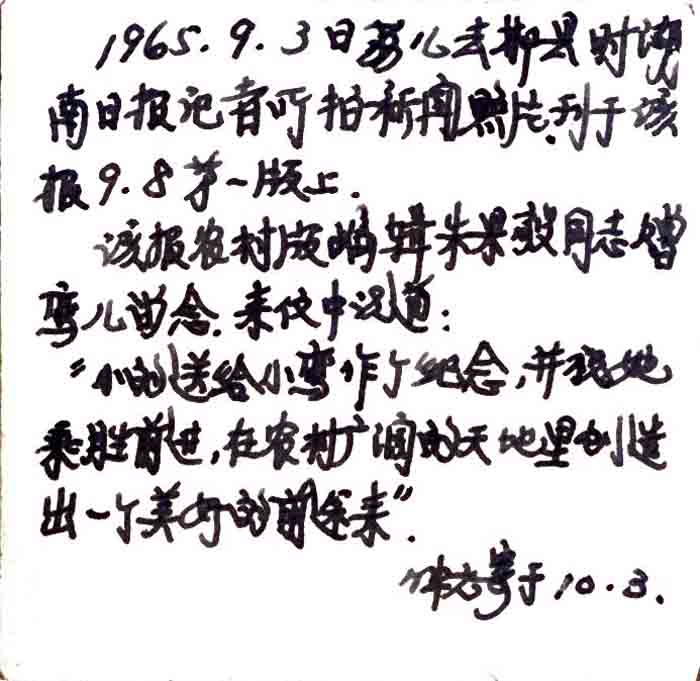 1965.9.3日弯儿去郴县时湖
南日报记者所拍新闻照片.刊于该
报9.8第一版上.
该报农村版编辑朱果毅同志赠
弯儿留念.来信中说道：
“小的送给小弯作个纪念，并祝她
乘胜前进，在农村广阔的天地里创造
出一个美好的前途来”.
寄于10.3.